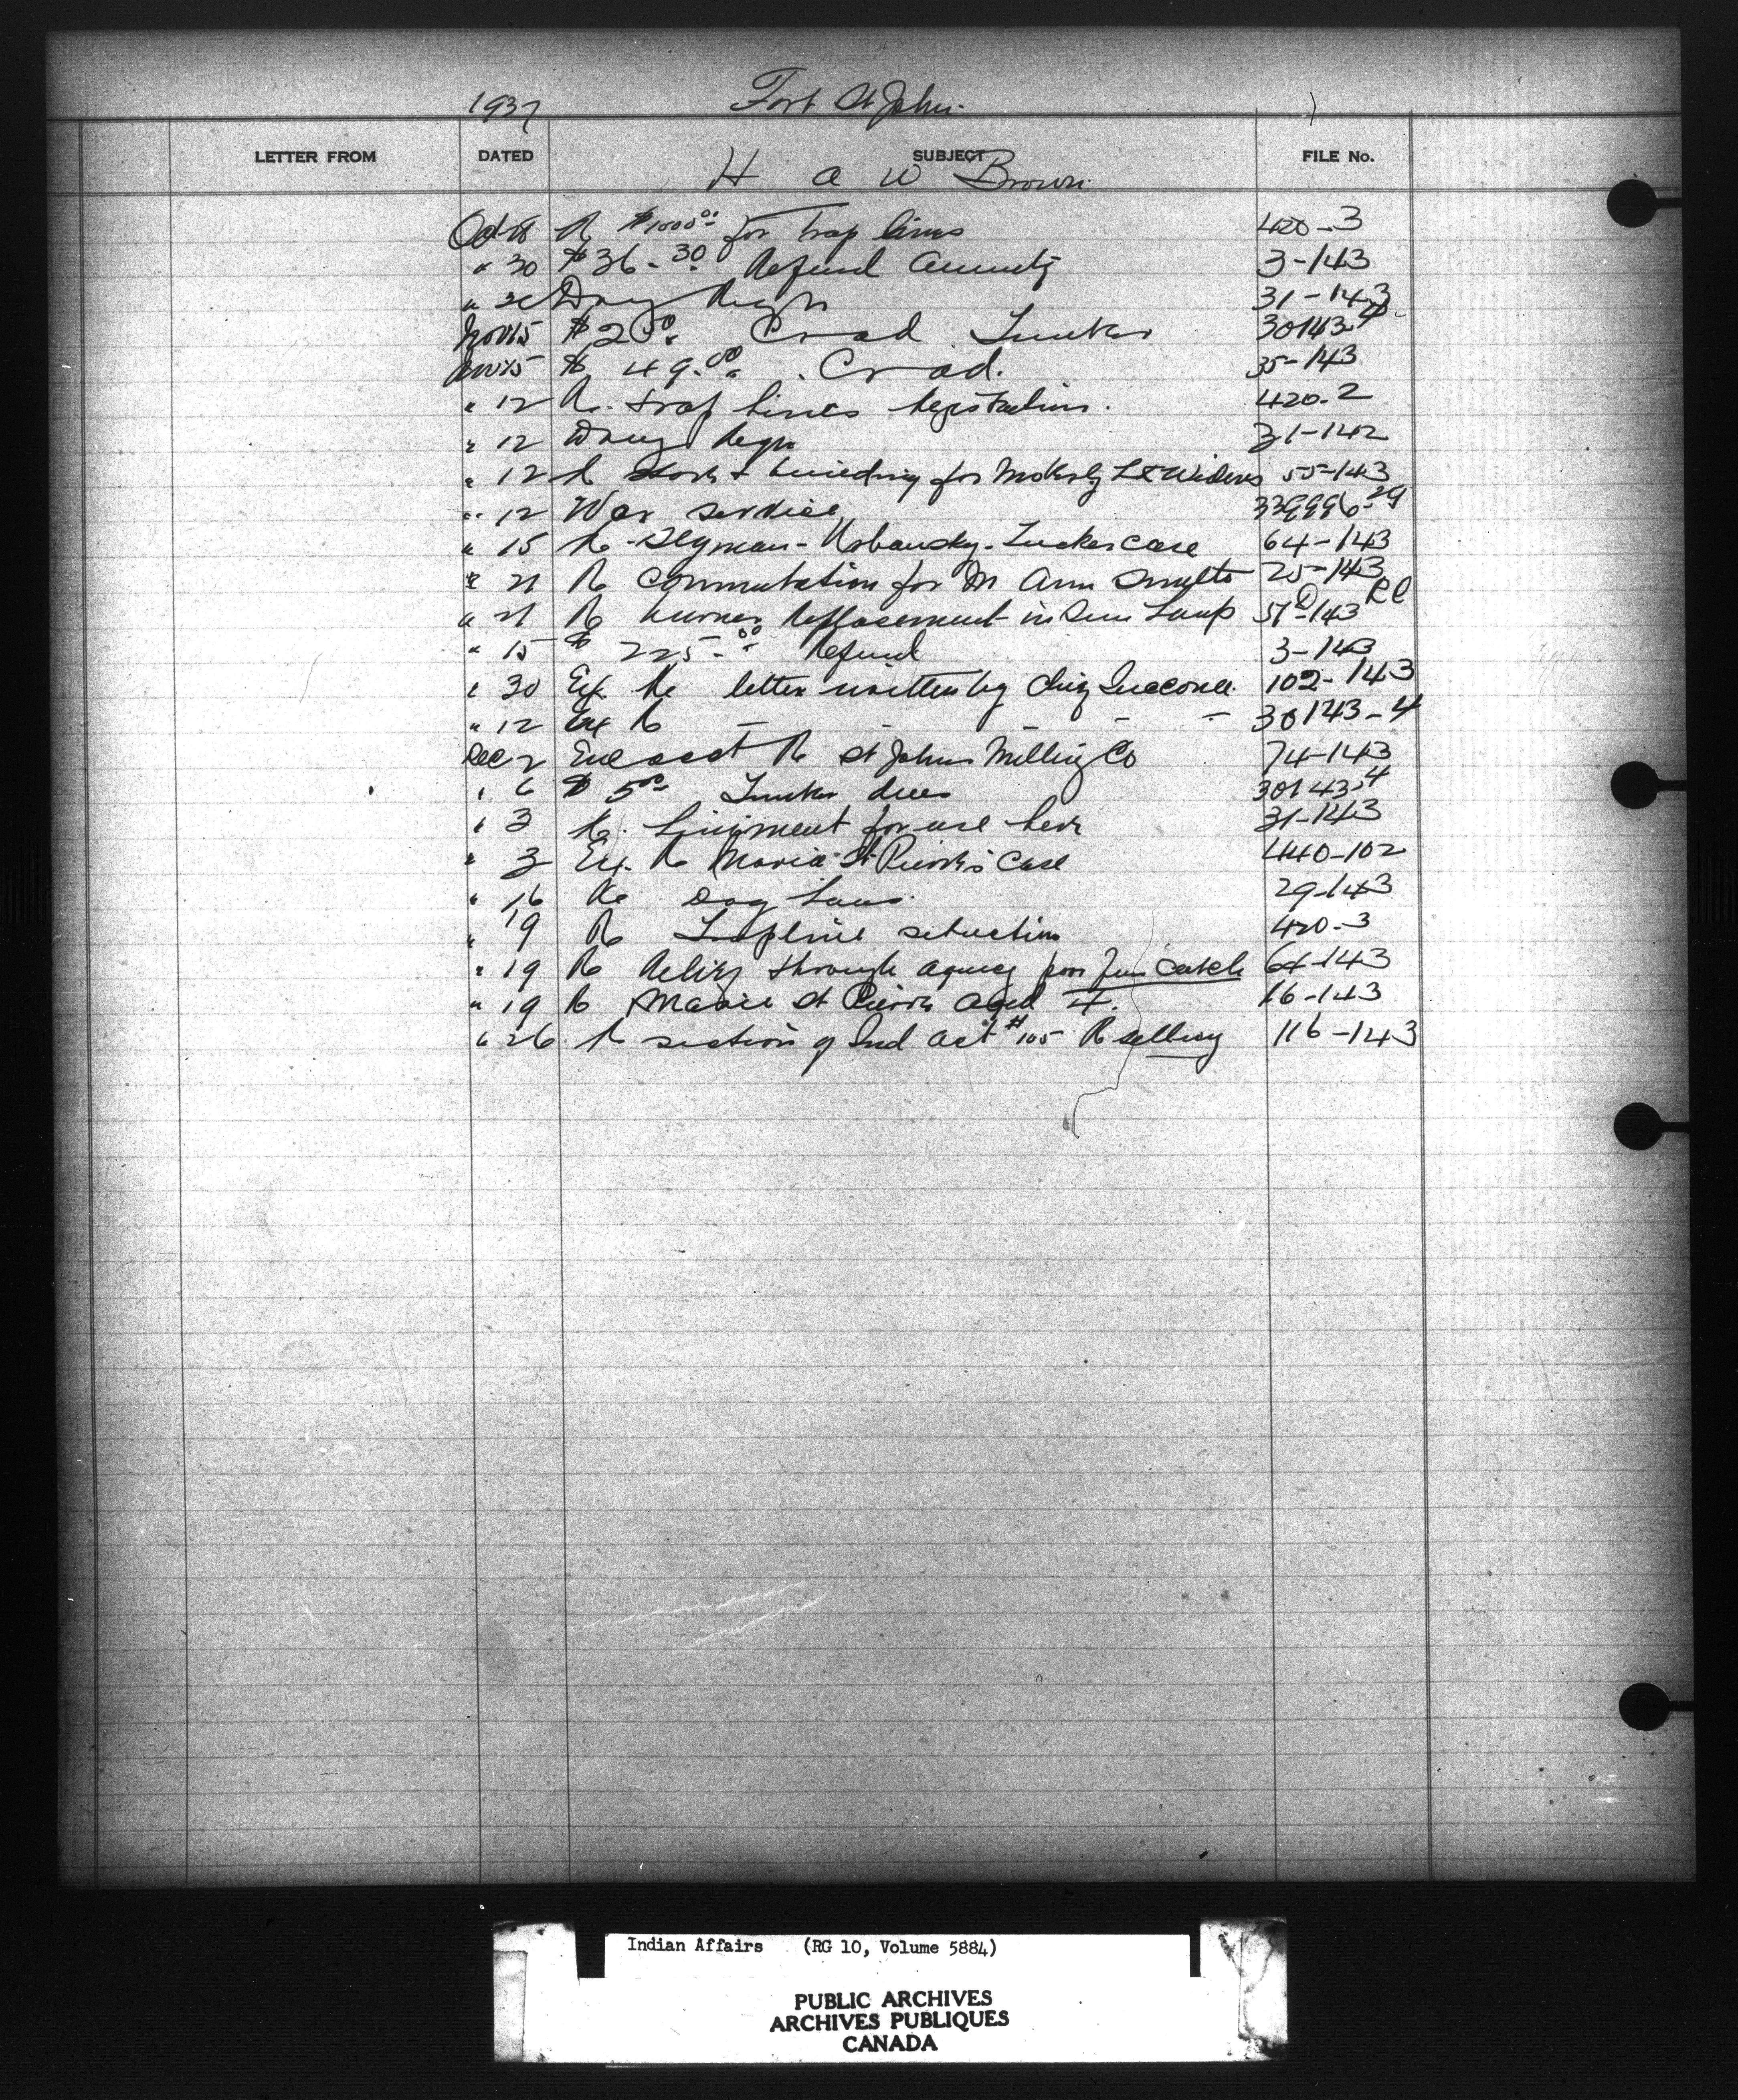 1937 Fort St John
LETTER FROM DATED SUBJECT FILE No.
H A W Brown
Oct 18 R $1000.00 for trap lines 420-3
" 30 $36.30 Refund Annuity 3-143
" Drug Reqn 31-143
Nov 15 $2 Timber 30143-4
Nov 15 $49.00 35-143
" 12 R. trap lines registration. 420-2
" 12 Drug Reqn 31-142
" 12 R & building for Moberly L & Widows 55-143
" 12 War service 339996-29
" 15 R - Case 64-143
" 21 R Commutation for M Ann 25-143
" 21 R burner Replacement in Lamp 51-143 RC
" 15 $225.00 Refund 3-143
" 30 Ex. Re letter written by Chief 102-143
" 12 Ex R - - - - 30143-4
Dec 2 Encl acct R St Johns Milling Co 74-143
" 6 $5.00 Timber dues 30143-4
" 3 R. Liniment for use here 31-143
" 3 Ex. R Maria St Pierre's Case 440-102
" 16 Re Dog Laws. 29-143
" 19 R Trapline situation 420-3
" 19 R Relief through agency poor fur catch 64-143
" 19 R Marie St Pierre aged 16-143
" 26 R section of Ind Act #105 R selling 116-143
Indian Affairs (RG 10, Volume 5884)
PUBLIC ARCHIVES
ARCHIVES PUBLIQUES
CANADA